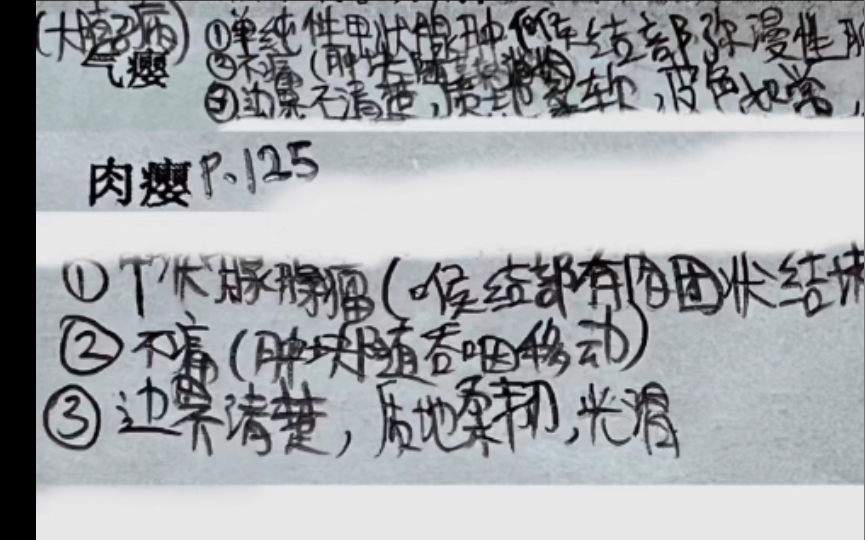 (大脖子病) ①单纯性甲状腺肿 喉结部弥漫性
气瘿 ②不痛(肿块随
③边界不清楚,质地柔软,皮色如常,
肉瘿 P.125
①甲状腺腺瘤(喉结部有 团状结块
②不痛(肿块随吞咽移动)
③边界清楚,质地柔韧,光滑